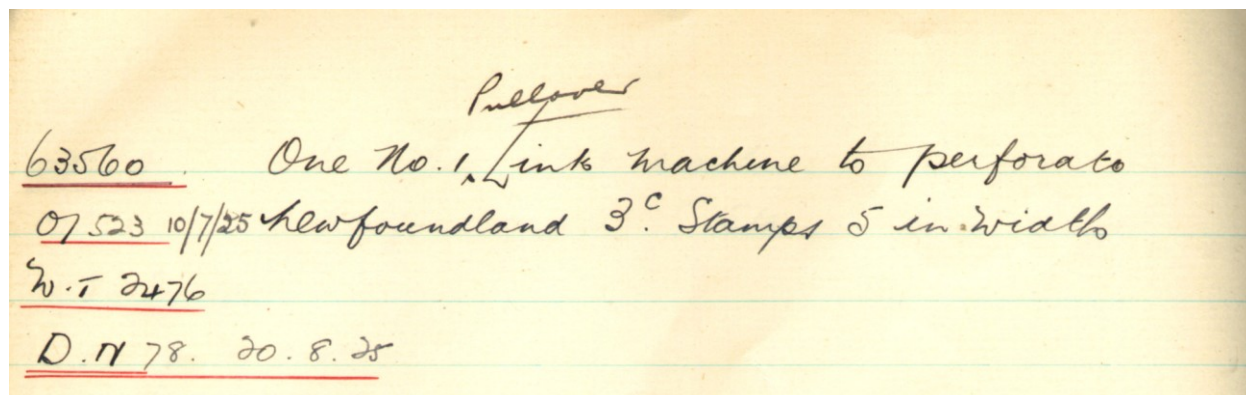 Pullover
63560. One No. 1. Link machine to perforate
O/ 523 10/7/25 Newfoundland 3c. Stamps 5 in width
W.T 2476
D.N 78. 20.8.25